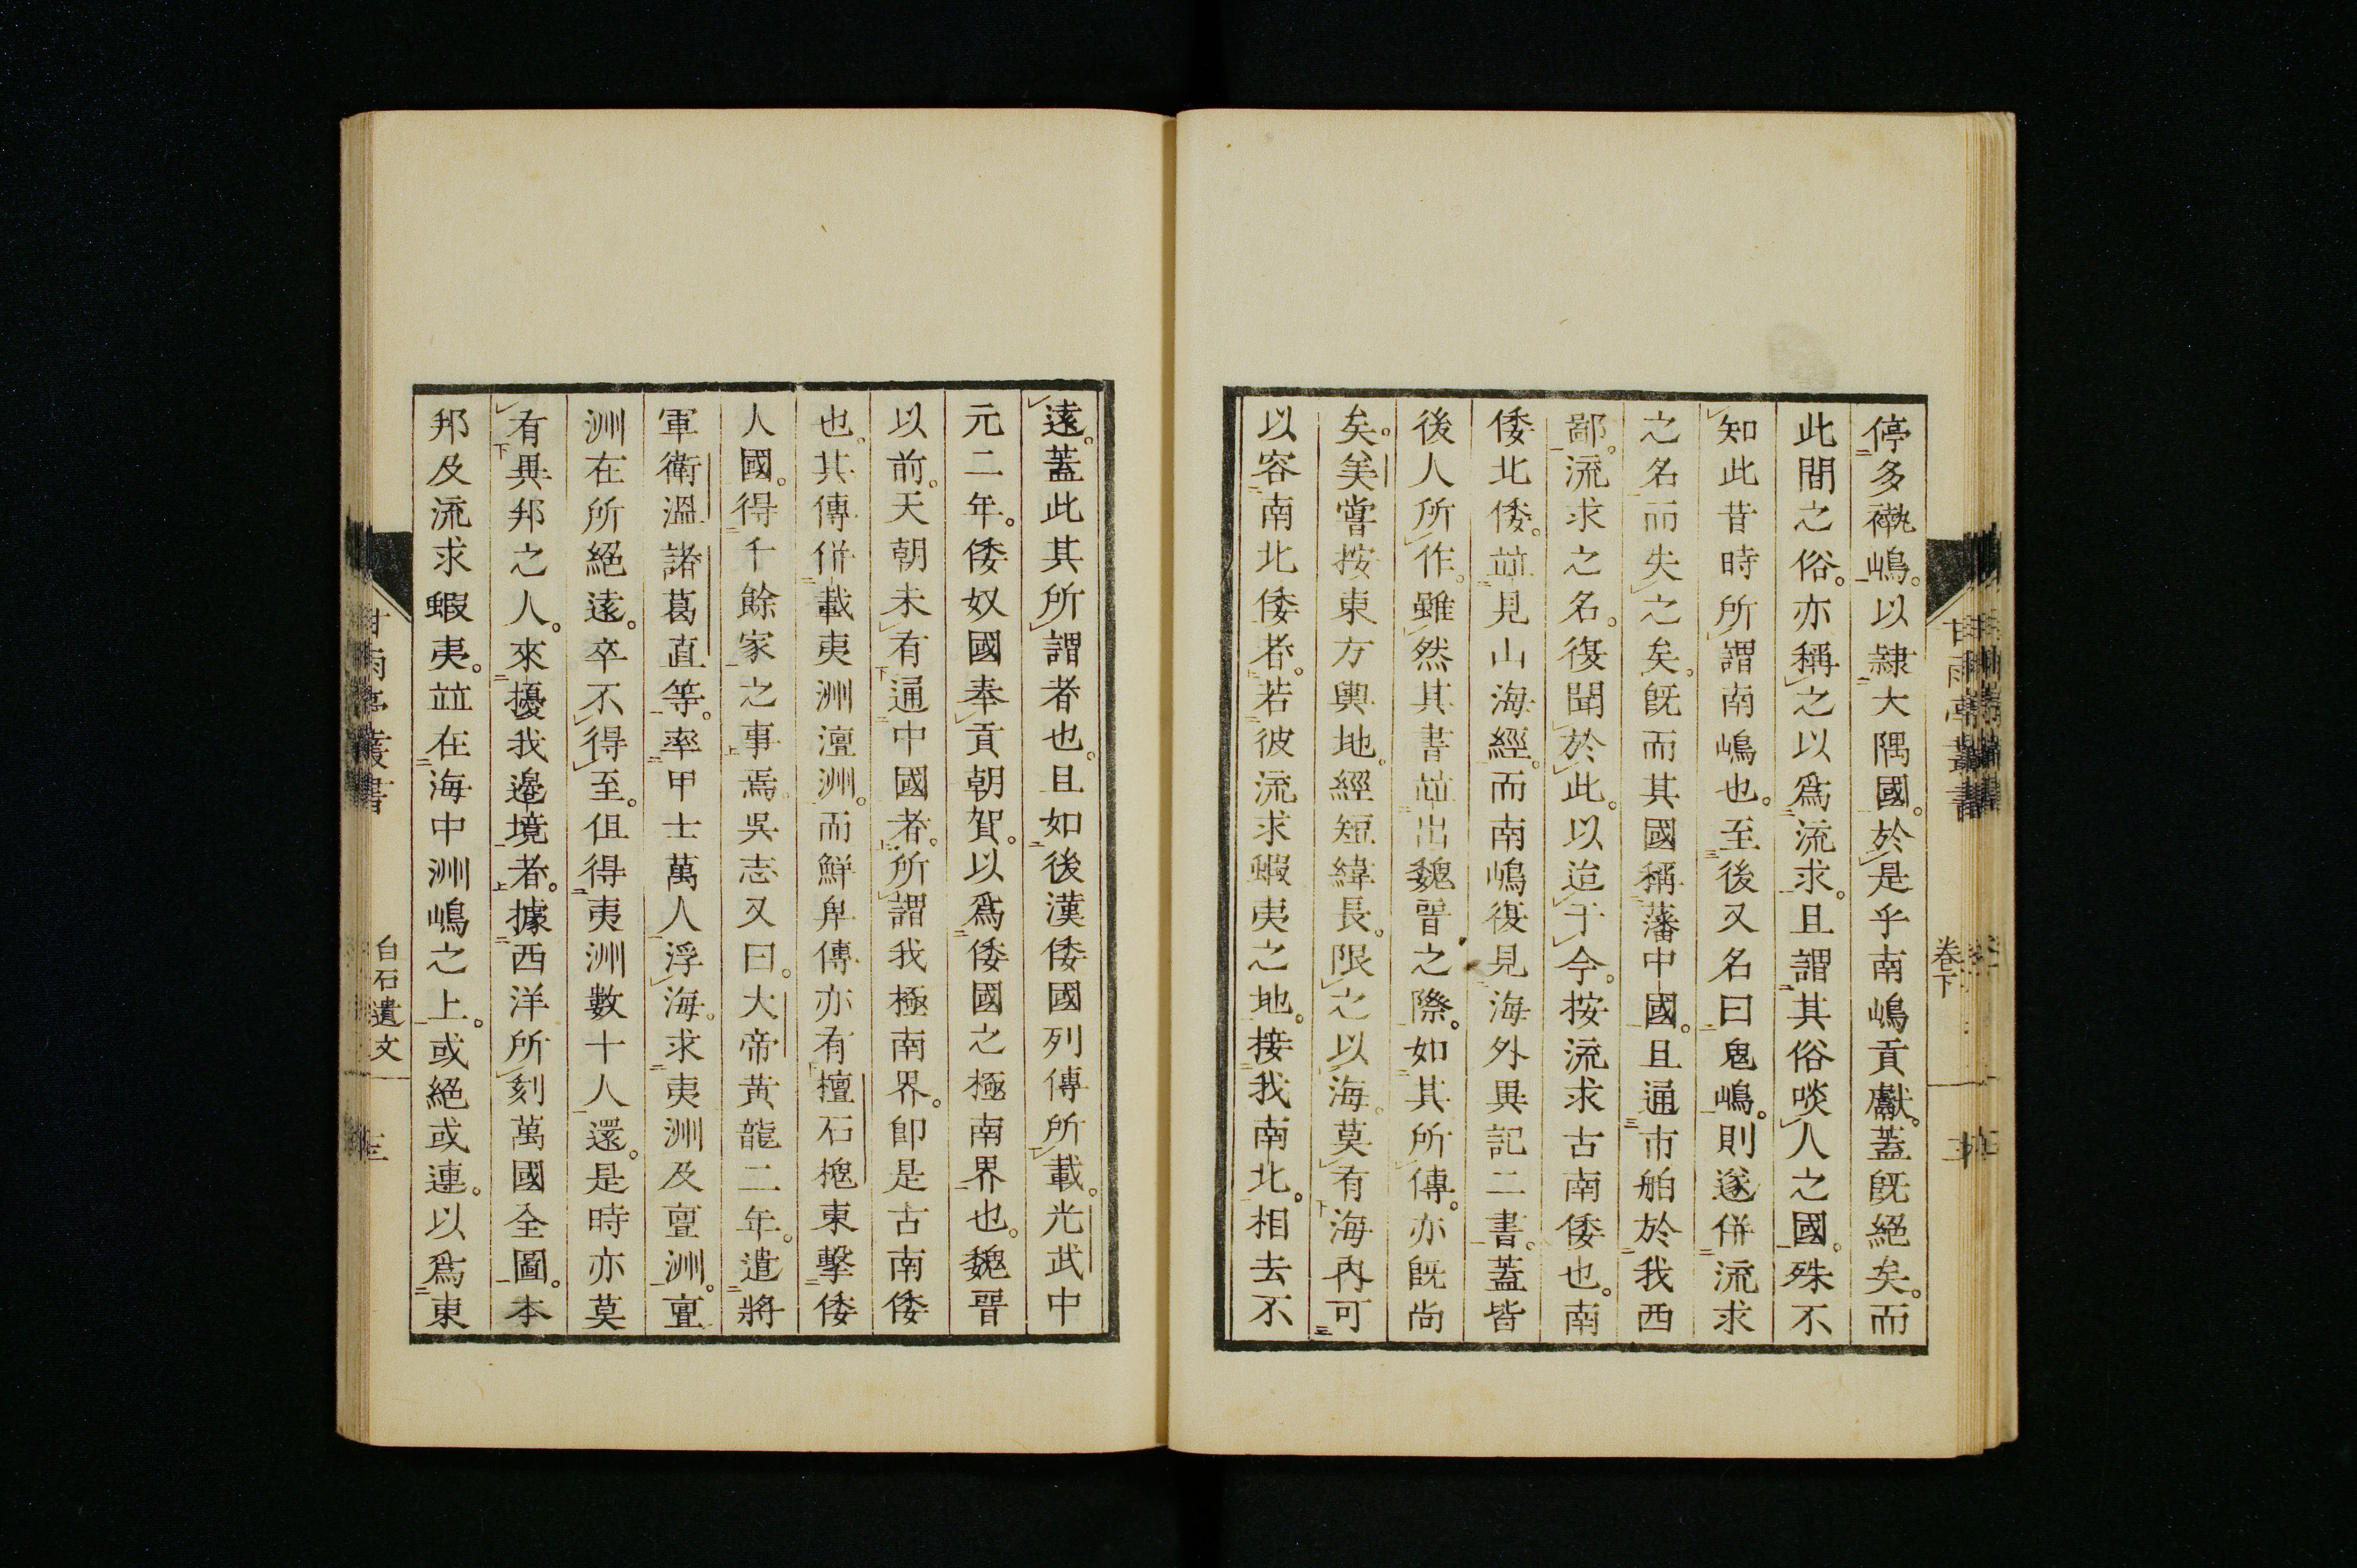 停多褹嶋。以隸大隅國。於是乎南嶋貢獻。蓋旣絕矣。而
此間之俗。亦稱之以爲流求。且謂其俗啖人之國。殊不
知此昔時所謂南嶋也。至後又名曰鬼嶋。則遂倂流求
之名而失之矣。旣而其國稱藩中國。且通市舶於我西
鄙。流求之名。復聞於此。以迨于今。按流求古南倭也。南
倭北倭。竝見山海經。而南嶋復見海外異記二書。蓋皆
後人所作。雖然其書竝出魏晉之際。如其所傳。亦旣尚
矣。美嘗按東方輿地。經短緯長。限之以海。莫有海內可
以容南北倭者。若彼流求蝦夷之地。接我南北。相去不
甘雨亭叢書
卷下
遠。蓋此其所謂者也。且如後漢倭國列傳所載。光武中
元二年。倭奴國奉貢朝賀。以爲倭國之極南界也。魏晉
以前。天朝未有通中國者。所謂我極南界。卽是古南倭
也。其傳倂載夷洲澶洲。而鮮卑傳亦有檀石槐東擊倭
人國。得千餘家之事焉。吳志又曰。大帝黃龍二年。遣將
軍衛溫諸葛直等。率甲士萬人浮海。求夷洲及亶洲。亶
洲在所絕遠。卒不得至。但得夷洲數十人還。是時亦莫
有異邦之人。來擾我邊境者。據西洋所刻萬國全圖。本
邦及流求蝦夷。竝在海中洲嶋之上。或絕或連。以爲東
甘雨亭叢書
白石遺文